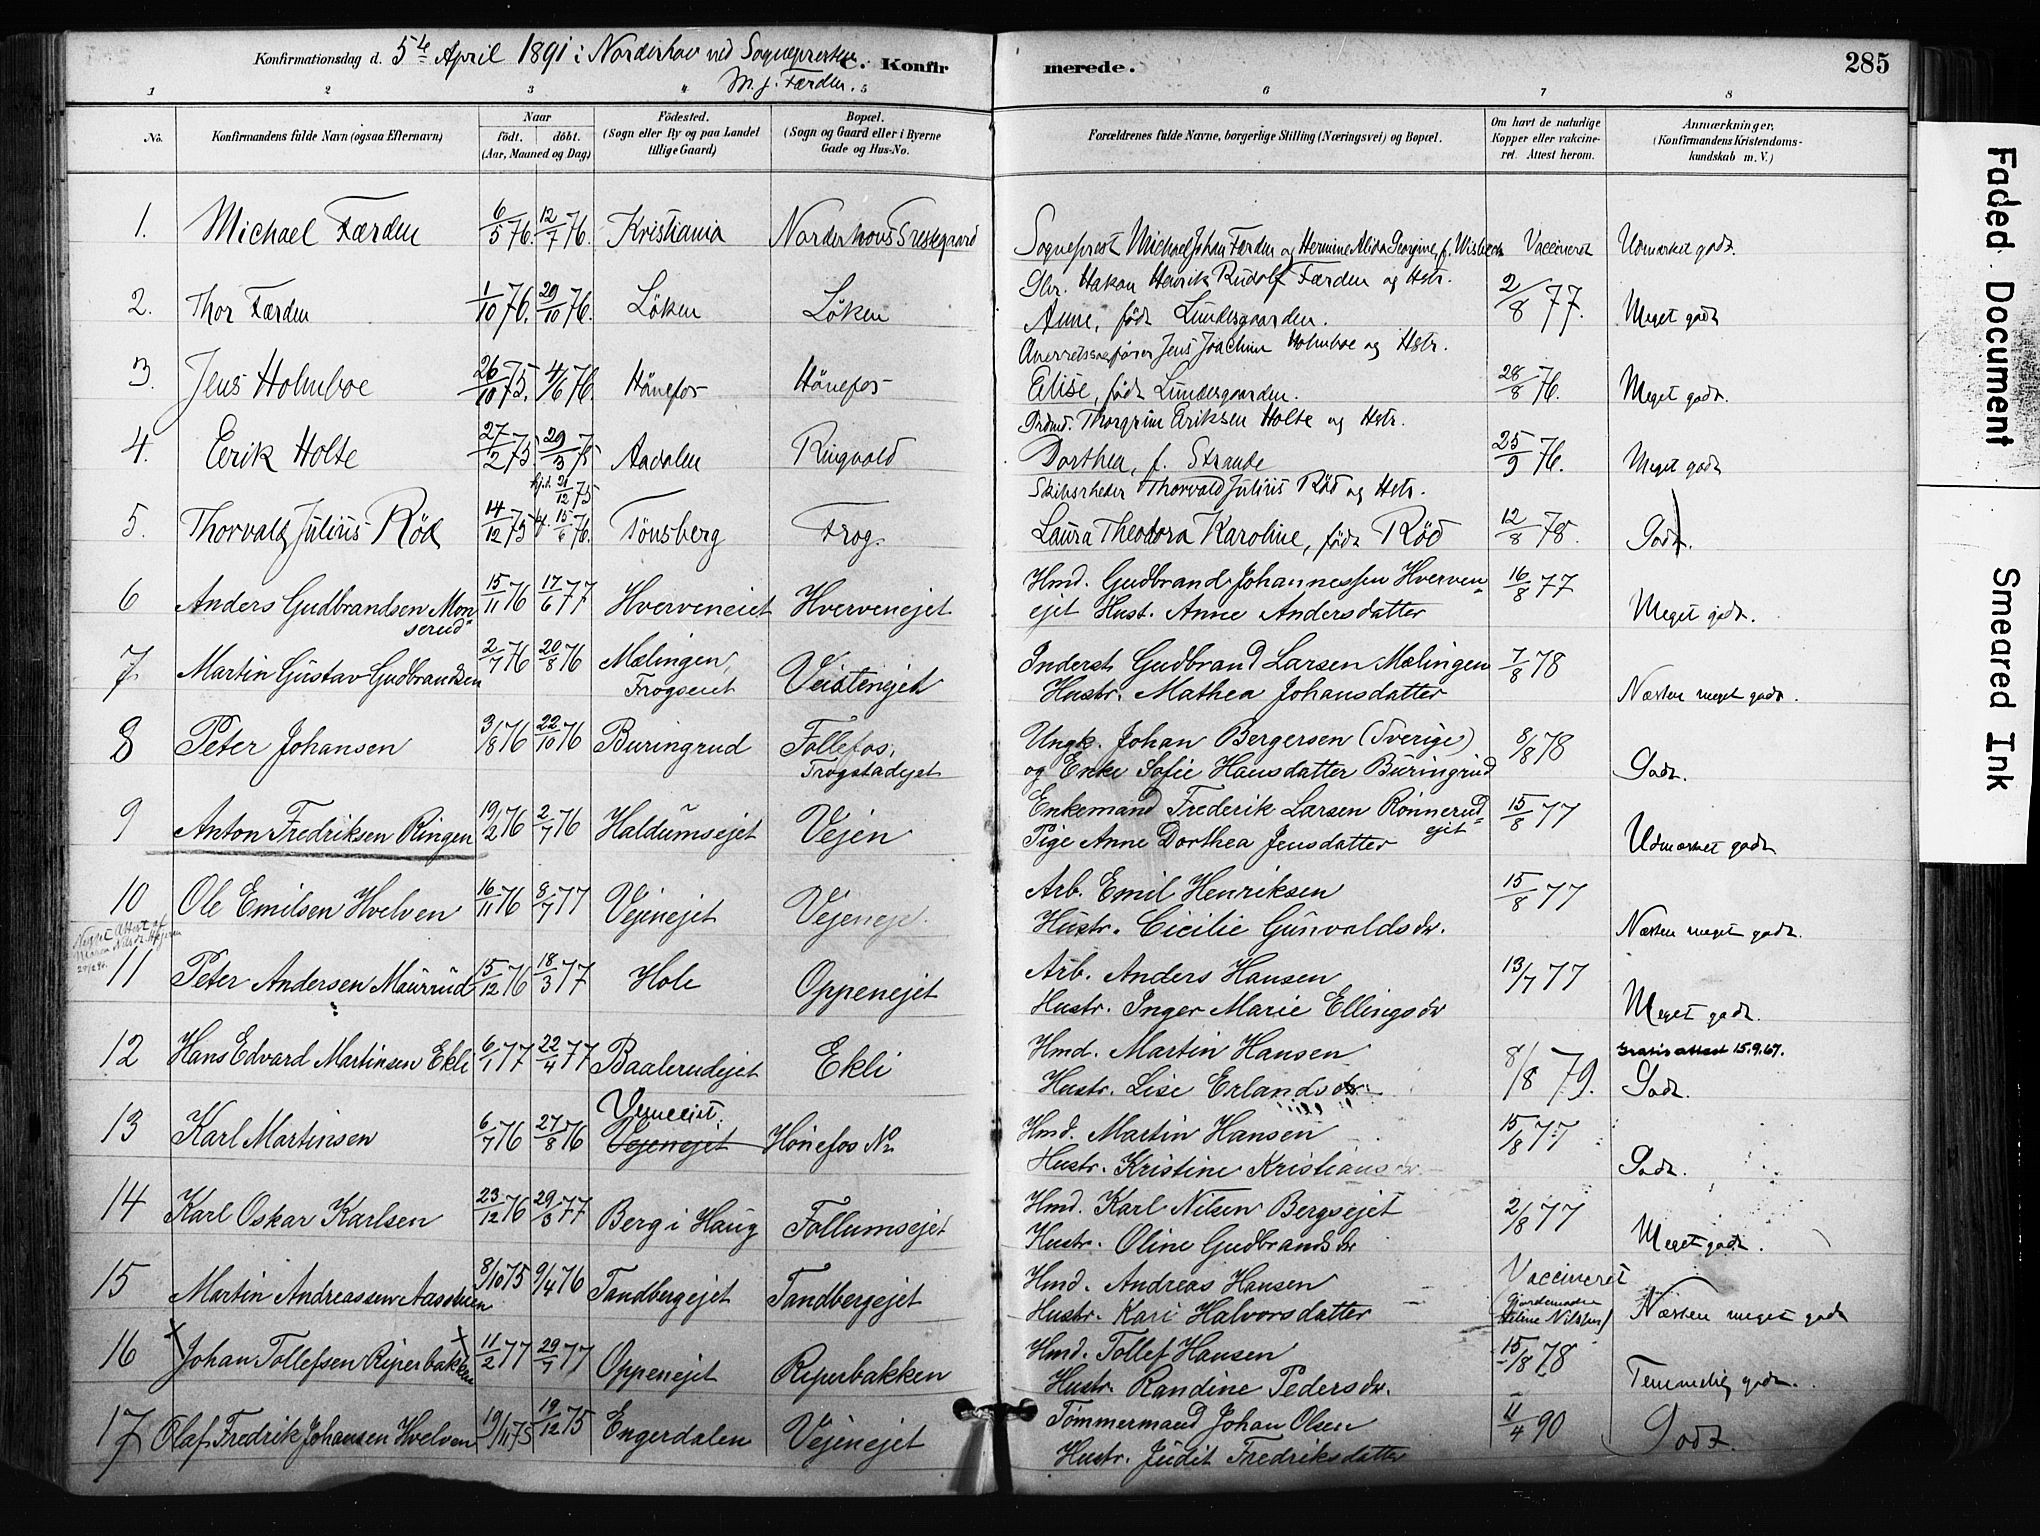 Konfirmationsdag d. 5te April 1891 i Norderhov ved Sognepresten C. Konfirmerede. 285
M. J. Færden.
1 2 3 4 5 6 7 8
No. Konfirmandens fulde Navn (ogsaa Efternavn) Naar født. døbt. (Aar, Maaned og Dag) Fødested. (Sogn eller By og paa Landet tillige Gaard) Bopæl. (Sogn og Gaard eller i Byerne Gade og Hus-No. Forældrenes fulde Navne, borgerlige Stilling (Næringsvei) og Bopæl. Om havt de naturlige Kopper eller vakcineret. Attest herom. Anmærkninger. (Konfirmandens Kristendomskundskab m. V.)
1. Michael Færden 6/5 76. 12/7 76. Kristiania Norderhovs Prestegaard Sogneprest Michael Johan Færden og Hermine Alida Georgine, f. Wisbech Vaccineret Udmærket godt.
2. Thor Færden 1/10 76. 29/10 76. Löken Löken Gbr. Hakon Henrik Rudolf Færden og Hstr.
Anne, født Lundesgaarden. 2/8 77. Meget godt
3. Jens Holmboe 26/10 75. 4/6 76. Hönefos Hönefos Overretssagfører Jens Joachim Holmboe og Hstr.
Elise, født Lundesgaarden. 28/8 76. Meget godt.
4. Eerik Holte 27/2 75. 29/3 75 Aadalen Ringvold Thorgrim Eriksen Holte og Hstr.
Dorthea, f. Strande 25/9 76. Meget godt
5. Thorvald Julius Röd 14/12 75 hjd. 21/12 75 f. 15/6 76. Tönsberg Frog. Skibsrheder Thorvald Julius Röd og Hstr.
Laura Theodora Karoline, født Röd 12/8 78. Godt.
6 Anders Gudbrandsen Monserud 15/11 76 17/6 77 Hverveneiet Hvervenejet Hmd. Gudbrand Johannessen Hvervenejet Hust. Anne Andersdatter 16/8 77 Meget godt.
7. Martin Gustav Gudbrandsen 2/7 76 20/8 76 Mælingen, Frogseiet Veistenejet Inderst Gudbrand Larsen Mælingen
Hustr. Mathea Johansdatter 7/8 78 Næsten meget godt.
8 Peter Johansen 3/8 76 22/10 76 Buringrud Follefos, Frogstadejet Ungk. Johan Bergersen (Sverige)
og Enke Sofie Hansdatter Buringrud 8/8 78 Godt.
9 Anton Fredriksen Ringen 19/2 76 2/7 76 Haldumsejet Vejen Enkemand Frederik Larsen Rønnerudejet
Pige Anne Dorthea Jensdatter 15/8 77 Udmærket godt
10 Ole Emilsen Hvelven 16/11 76 8/7 77 Vejenejet Vejeneje. Arb. Emil Henriksen
Hustr. Cicilie Gunvaldsdr. 15/8 77 Næsten meget godt.
11 Peter Andersen Maurrud 15/12 76 18/3 77 Hole Oppenejet Arb. Anders Hansen
Hustr. Inger Marie Ellingsdr 13/7 77 Meget godt.
12 Hans Edvard Martinsen Ekli 6/1 77 22/4 77 Baalerudejet Ekli Hmd. Martin Hansen
Hustr. Lise Erlandsdtr. 8/8 79. Gratis attest 15.9.67. Godt.
13 Karl Martinsen 6/7 76 27/8 76 Vejenejet Hönefos No Hmd. Martin Hansen
Hustr. Kristine Kristiansdr. 15/8 77 Godt.
14 Karl Oskar Karlsen 23/12 76 29/3 77 Berg i Haug Follumsejet Hmd. Karl Nilsen Bergsejet
Hustr. Oline Gudbrandsdr 2/8 77 Meget godt.
15 Martin Andreassen Aasveien 8/10 75 9/4 76 Tandbergejet Tandbergejet Hmd. Andreas Hansen
Hustr. Kari Halvorsdatter Vaccineret (Gjordemoder Helene Nilssen) Næsten meget godt
16 Johan Tollefsen Riperbakken 11/2 77 29/7 77 Oppenejet Riperbakken Hmd. Tollef Hansen
Hustr. Randine Pedersdr. 15/8 78 Temmelig godt.
17 Olaf Fredrik Johansen Hvelven 19/11 75 19/12 75 Engerdalen Vejenejet Tømmermand Johan Olsen
Hustr. Judit Fredriksdatter 11/4 90 Godt.
Faded Document
Smeared Ink